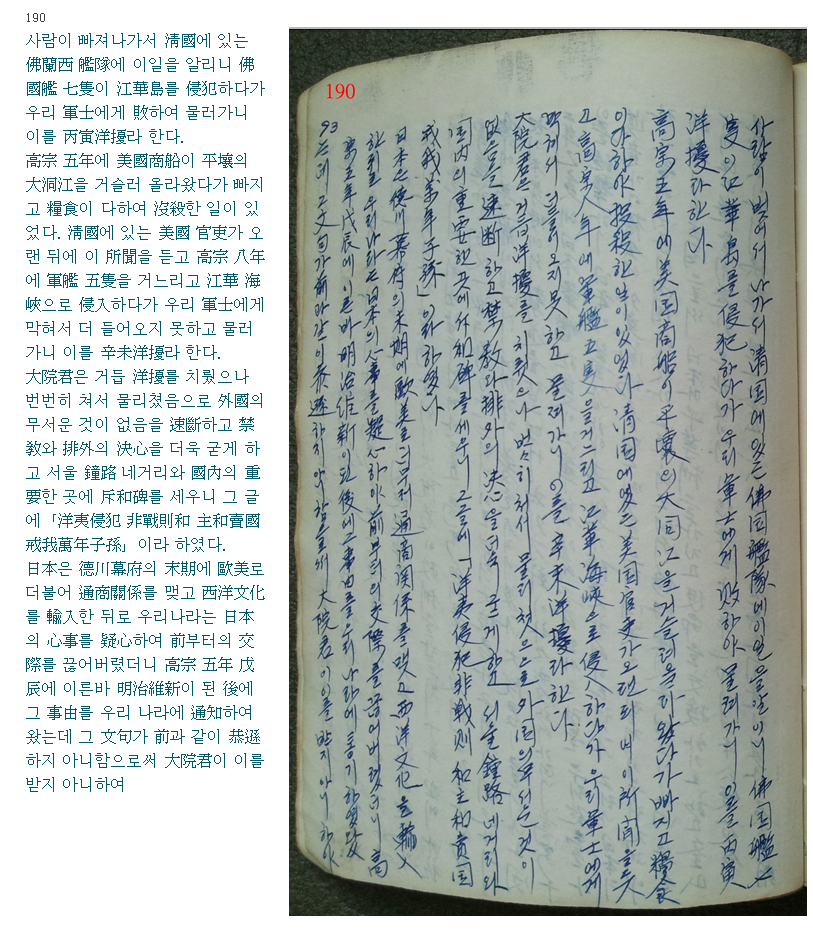 190
사람이 빠져나가서 淸國에 있는
佛蘭西 艦隊에 이일을 알리니 佛
國艦 七隻이 江華島를 侵犯하다가
우리 軍士에게 敗하여 물러가니
이를 丙寅洋擾라 한다.
高宗 五年에 美國商船이 平壤의
大洞江을 거슬러 올라왔다가 빠지
고 糧食이 다하여 沒殺한 일이 있
었다. 淸國에 있는 美國 官吏가 오
랜 뒤에 이 所聞을 듣고 高宗 八年
에 軍艦 五隻을 거느리고 江華 海
峽으로 侵入하다가 우리 軍士에게
막혀서 더 들어오지 못하고 물러
가니 이를 辛未洋擾라 한다.
大院君은 거듭 洋擾를 치뤘으나
번번히 쳐서 물리쳤음으로 外國의
무서운 것이 없음을 速斷하고 禁
敎와 排外의 決心을 더욱 굳게 하
고 서울 鐘路 네거리와 國內의 重
要한 곳에 斥和碑를 세우니 그 글
에「洋夷侵犯 非戰則和 主和賣國
戒我萬年子孫」이라 하였다.
日本은 德川幕府의 末期에 歐美로
더불어 通商關係를 맺고 西洋文化
를 輸入한 뒤로 우리나라는 日本
의 心事를 疑心하여 前부터의 交
際를 끊어버렸더니 高宗 五年 戊
辰에 이른바 明治維新이 된 後에
그 事由를 우리 나라에 通知하여
왔는데 그 文句가 前과 같이 恭遜
하지 아니함으로써 大院君이 이를
받지 아니하여
190
사람이 벗어서 나가서 清国에 있는 佛国艦隊에 이일을 알이니 佛国艦 七
隻이 江華島를 侵犯하다가 우리 軍士에게 敗하야 물러가니 이를 丙寅
洋擾라 한다
高宗 五年에 美国商船이 平壤의 大同江을 거슬러 올라왔다가 빠지고 糧食
이 다하야 投殺한 일이 있었다 清国에 있는 美国官吏가 오랜 뒤에 이 所聞을 듯
고 高宗八年에 軍艦 五隻을 거느리고 江華海峽으로 侵入하다가 우리 軍士에게
막혀서 더 들어오지 못하고 물러가니 이를 辛未洋擾라 한다
大院君은 거듭 洋擾를 치뤗으나 번번히 처서 물리첫으므로 外国의 무서운 것이
없음을 速断하고 禁教와 排外의 決心을 더욱 굳게 하고 서울 鐘路 네거리와
国内의 重要한 곳에 斥和碑를 세우니 그 글에「洋夷侵犯非戦則和主和賣国
戒我萬年子孫」이라 하였다
日本은 徳川幕府의 末期에 欧美로 더부러 通商関係를 맺고 西洋文化를 輸入
한 뒤로 우리나라는 日本의 心事를 疑心하야 前부터의 交際를 끊어버렷더니 高
宗五年 戊辰에 이른바 明治維新이 된 後에 그 事由를 우리 나라에 통기하였
93
는데 그 文句가 前과 같이 恭遜하지 아니함으로써 大院君이 이를 받지 아니하야